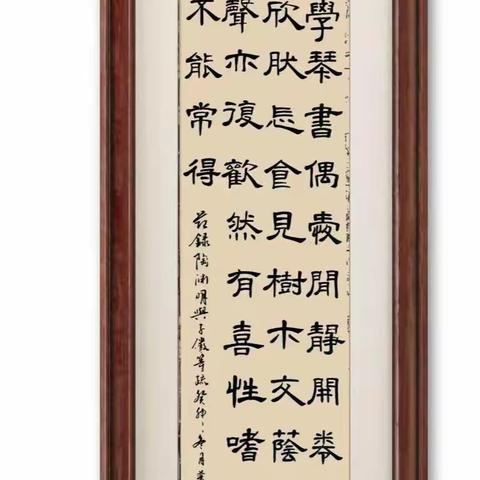 學琴書偶愛閒靜開卷
欣然忘食見樹木交蔭
聲亦復歡然有喜性嗜
不能常得
錄陶淵明與子儼等疏癸卯冬月